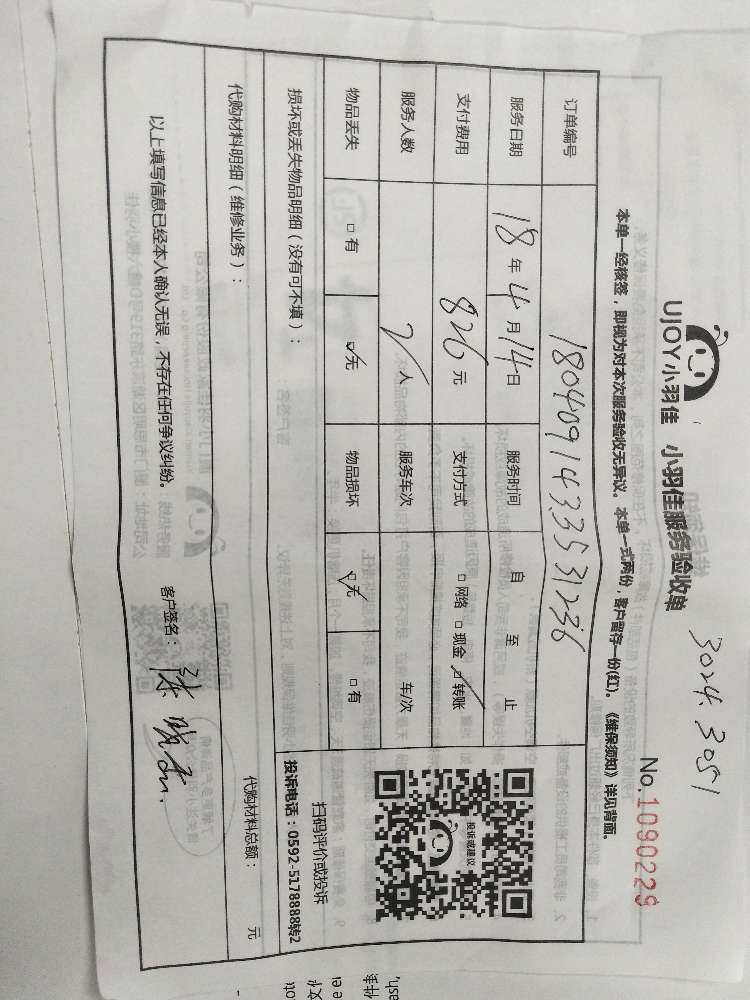 3024.3051
UJOY小羽佳 小羽佳服务验收单
No.1090229
本单一经核签，即视为对本次服务验收无异议。本单一式两份，客户留存一份(红)。《维保须知》详见背面。
订单编号 180409143353 31236
服务日期 18年4月14日 服务时间 自 至 止
支付费用 826元 支付方式 □网络 □现金 ☑转账
服务人数 2人 服务车次 车/次
物品丢失 □有 ☑无 物品损坏 ☑无 □有
损坏或丢失物品明细（没有可不填）：
投诉或建议
扫码评价或投诉
投诉电话：0592-5178888转2
代购材料明细（维修业务）： 代购材料总额： 元
以上填写信息已经本人确认无误，不存在任何争议纠纷。 客户签名：